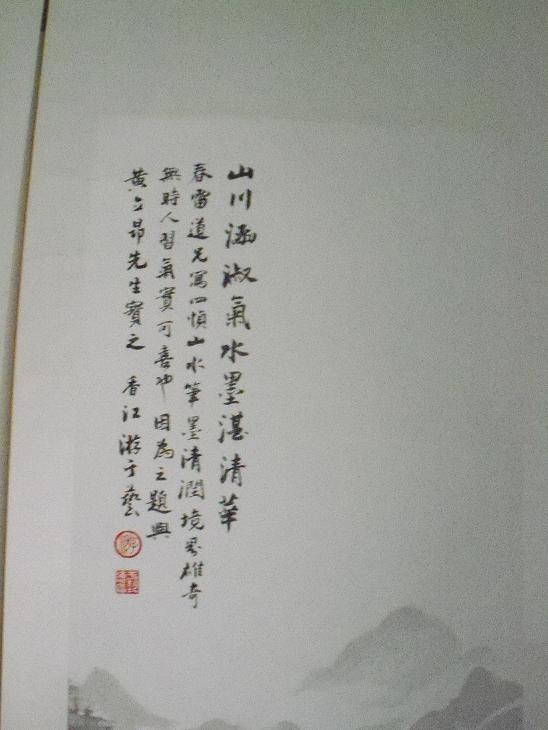 山川涵淑氣水墨湛清華
春雷道兄寫四幀山水筆墨清潤境界雄奇
無時人習氣實可喜也因為之題與
黃立昂先生寶之 香江游于藝